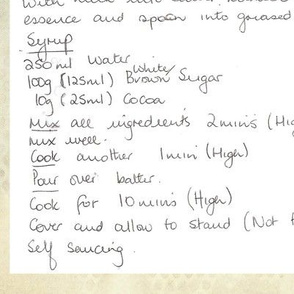 essence and spoon into greased
Syrup
250ml Water
White
100g (125ml) Brown Sugar
10g (25ml) Cocoa
Mix all ingredients 2mins (Hi
mix well.
Cook another 1min (High)
Pour over batter.
Cook for 10mins (High)
Cover and allow to stand (Not
Self Saucing.